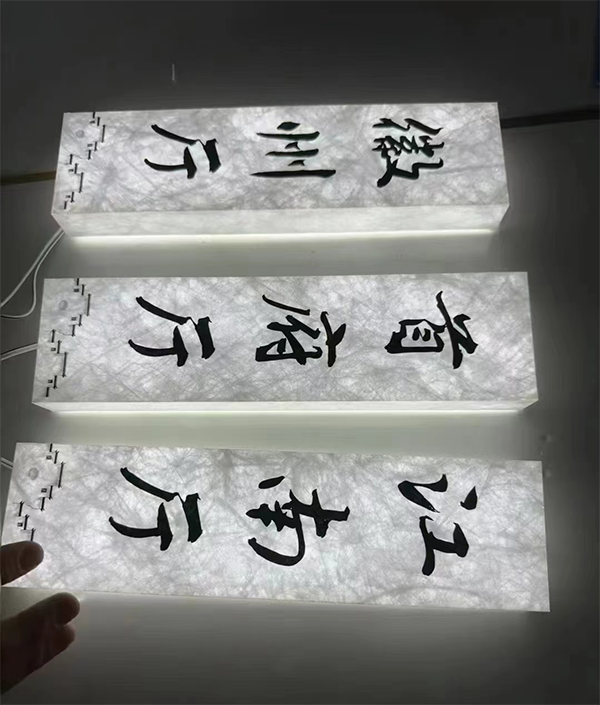 徽州厅
首府厅
江南厅